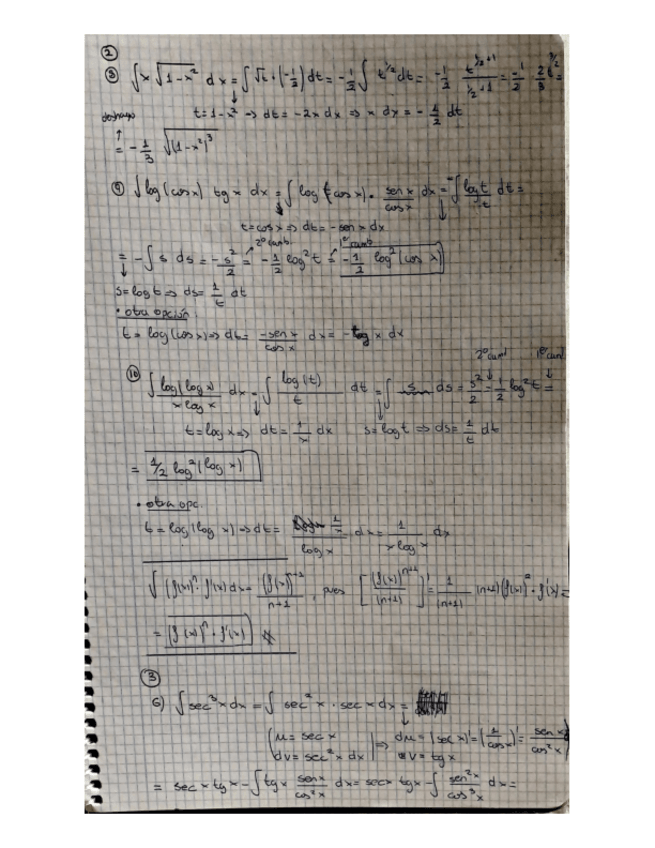 ②
③ ∫x √(1-x²) dx = ∫√t · (-1/2) dt = -1/2 ∫ t^(1/2) dt = -1/2 t^(1/2+1)/(1/2+1) = -1/2 · 2/3 t^(3/2) =
t = 1-x² ⇒ dt = -2x dx ⇒ x dx = -1/2 dt
deshago
= -1/3 √(1-x²)³
⑨ ∫log(cos x) tg x dx = ∫ log(cos x) · sen x/cos x dx = -∫ log t/t dt =
t = cos x ⇒ dt = -sen x dx
2º camb. 1º camb
= -∫ s ds = -s²/2 = -1/2 log² t = -1/2 log² (cos x)
s = log t ⇒ ds = 1/t dt
• otra opción:
t = log(cos x) ⇒ dt = -sen x/cos x dx = -tg x dx
2º camb 1º camb
⑩ ∫ log(log x)/(x log x) dx = ∫ log(t)/t dt = ∫ s ds = s²/2 = 1/2 log² t =
t = log x ⇒ dt = 1/x dx s = log t ⇒ ds = 1/t dt
= 1/2 log² (log x)
• otra opc.
t = log(log x) ⇒ dt = (1/x)/log x dx = 1/(x log x) dx
∫ (f(x))ⁿ · f'(x) dx = (f(x))^(n+1)/(n+1), pues [(f(x))^(n+1)/(n+1)]' = 1/(n+1) (n+1)(f(x))ⁿ · f'(x) =
= (f(x))ⁿ · f'(x)
③
6) ∫ sec³ x dx = ∫ sec² x · sec x dx =
(u = sec x ⇒ du = (sec x)' = (1/cos x)' = sen x/cos² x
dv = sec² x dx v = tg x
= sec x tg x - ∫ tg x sen x/cos² x dx = sec x tg x - ∫ sen² x/cos³ x dx =